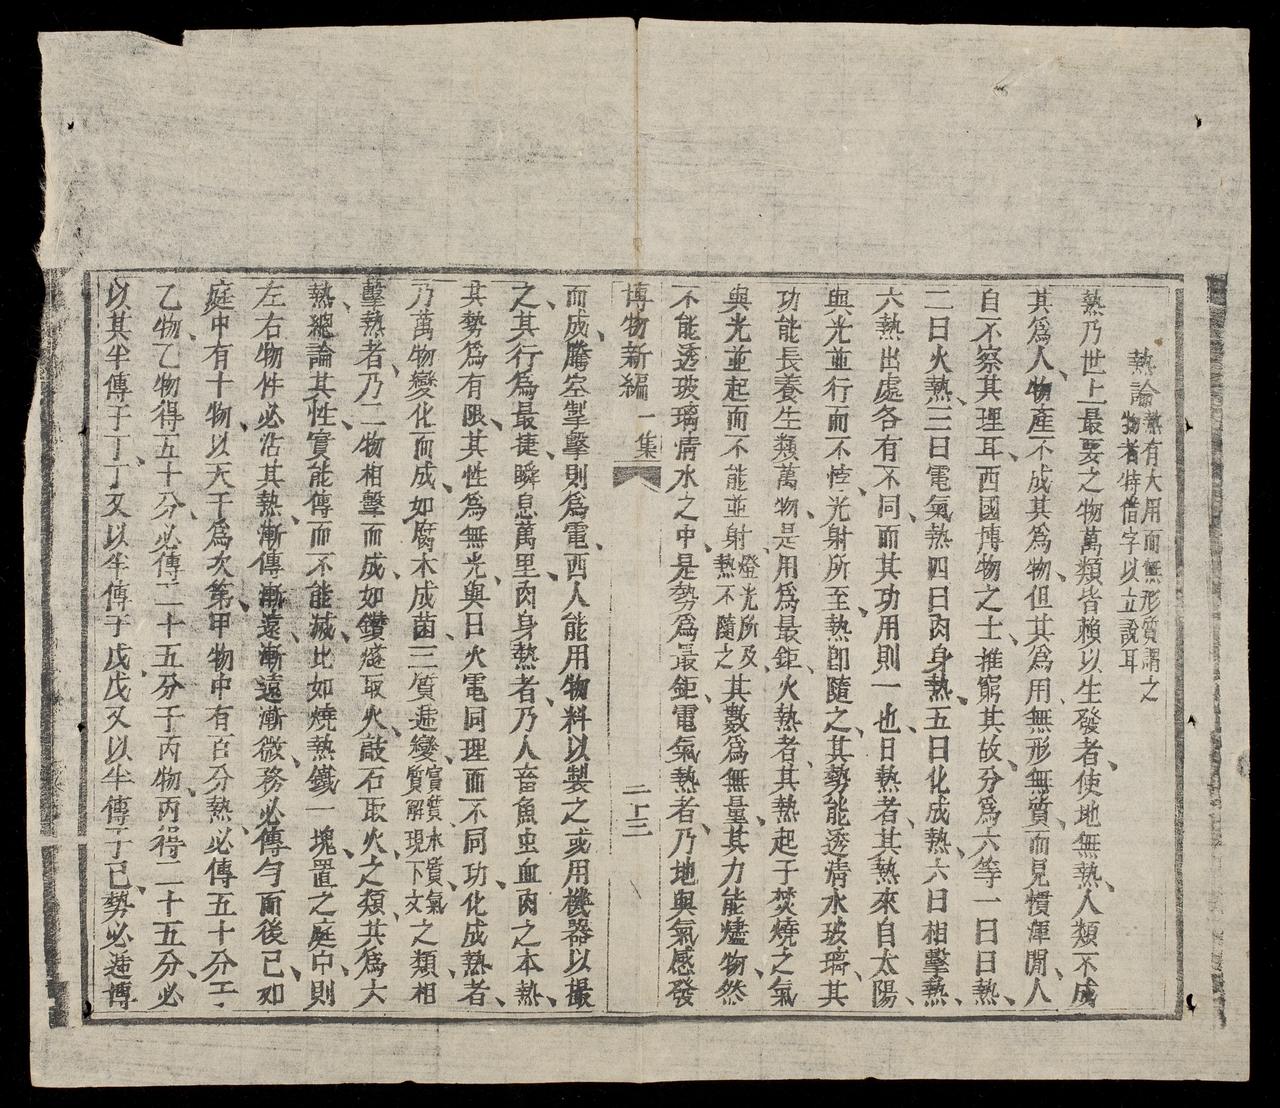 熱論熱有大用而無形質謂之
物者特借字以立說耳
熱乃世上最要之物萬類皆賴以生發者使地無熱人類不成
其爲人物產不成其爲物但其爲用無形無質而見慣渾閒人
自不察其理耳西國博物之士推窮其故分爲六等一曰日熱
二曰火熱三曰電氣熱四曰肉身熱五曰化成熱六曰相擊熱
六熱出處各有不同而其功用則一也日熱者其熱來自太陽
與光並行而不悖光射所至熱卽隨之其勢能透清水玻璃其
功能長養生類萬物是用爲最鉅火熱者其熱起于焚燒之氣
與光並起而不能並射燈光所及熱不隨之其數爲無量其力能爐物然
不能透玻璃清水之中是勢爲最鉅電氣熱者乃地與氣感發
博物新編 一集 二十三
而成騰空掣擊則爲電西人能用物料以製之或用機器以撮
之其行爲最捷瞬息萬里肉身熱者乃人畜魚虫血肉之本熱
其勢爲有限其性爲無光與日火電同理而不同功化成熱者
乃萬物變化而成如腐木成菌三質遞變實質水質氣質解現下文之類相
擊熱者乃二物相擊而成如鑽燧取火敲石取火之類其爲大
熱總論其性實能傳而不能減比如燒熱鐵一塊置之庭中則
左右物件必沾其熱漸傳漸遠漸遠漸微務必傳勻而後已如
庭中有十物以天干爲次第甲物中有百分熱必傳五十分于
乙物乙物得五十分必傳二十五分于丙物丙得二十五分必
以其半傳于丁丁又以半傳于戊戊又以半傳于己勢必遞傳